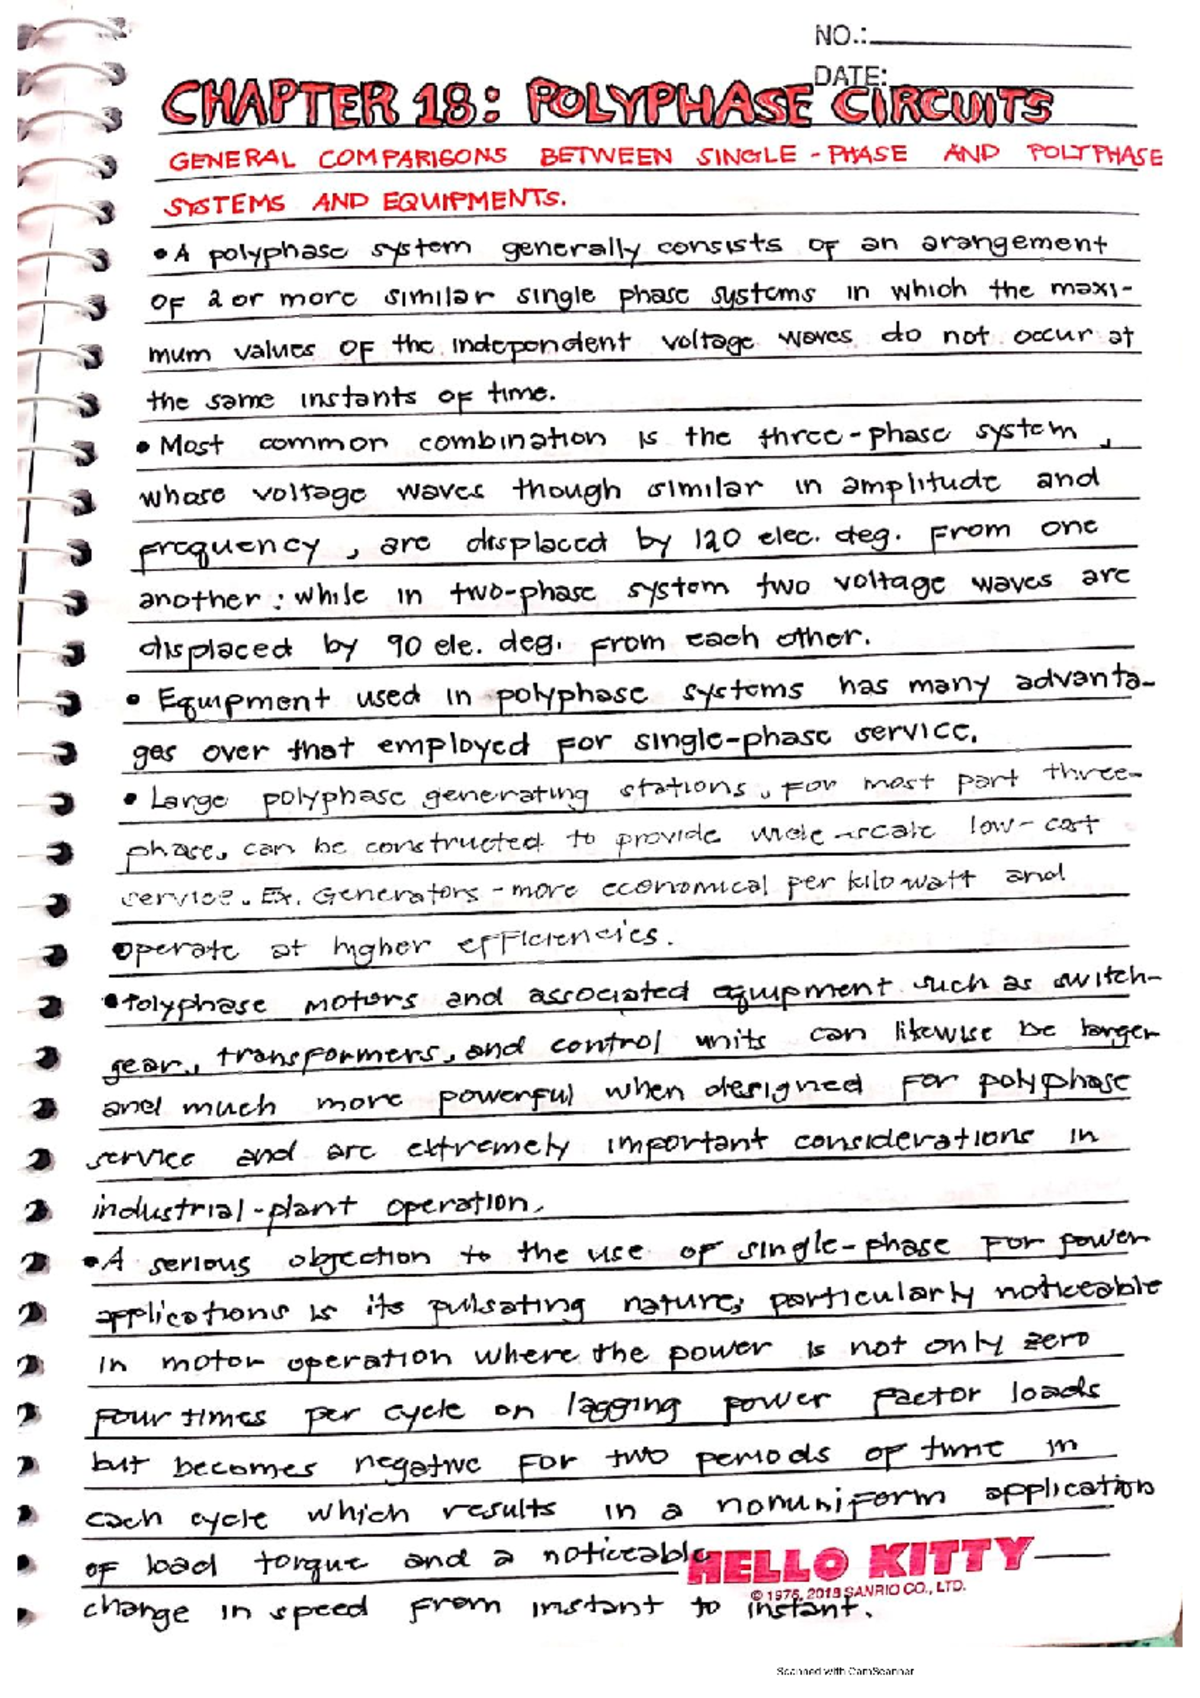 NO.:
DATE:
CHAPTER 18: POLYPHASE CIRCUITS
GENERAL COMPARISONS BETWEEN SINGLE-PHASE AND POLYPHASE
SYSTEMS AND EQUIPMENTS.
• A polyphase system generally consists of an arangement
of 2 or more similar single phase systems in which the maxi-
mum values of the independent voltage waves do not occur at
the same instants of time.
• Most common combination is the three-phase system,
whose voltage waves though similar in amplitude and
frequency, are displaced by 120 elec. deg. from one
another; while in two-phase system two voltage waves are
displaced by 90 ele. deg. from each other.
• Equipment used in polyphase systems has many advanta-
ges over that employed for single-phase service.
• Large polyphase generating stations, for most part three-
phase, can be constructed to provide wide-scale low-cost
service. Ex. Generators - more economical per kilowatt and
operate at higher efficiencies.
• Polyphase motors and associated equipment such as switch-
gear, transformers, and control units can likewise be larger
and much more powerful when designed for polyphase
service and are extremely important considerations in
industrial-plant operation.
• A serious objection to the use of single-phase for power
applications is its pulsating nature; particularly noticeable
in motor operation where the power is not only zero
four times per cycle on lagging power factor loads
but becomes negative for two periods of time in
each cycle which results in a nonuniform application
of load torque and a noticeable
HELLO KITTY
© 1976, 2018 SANRIO CO., LTD.
change in speed from instant to instant.
Scanned with CamScanner